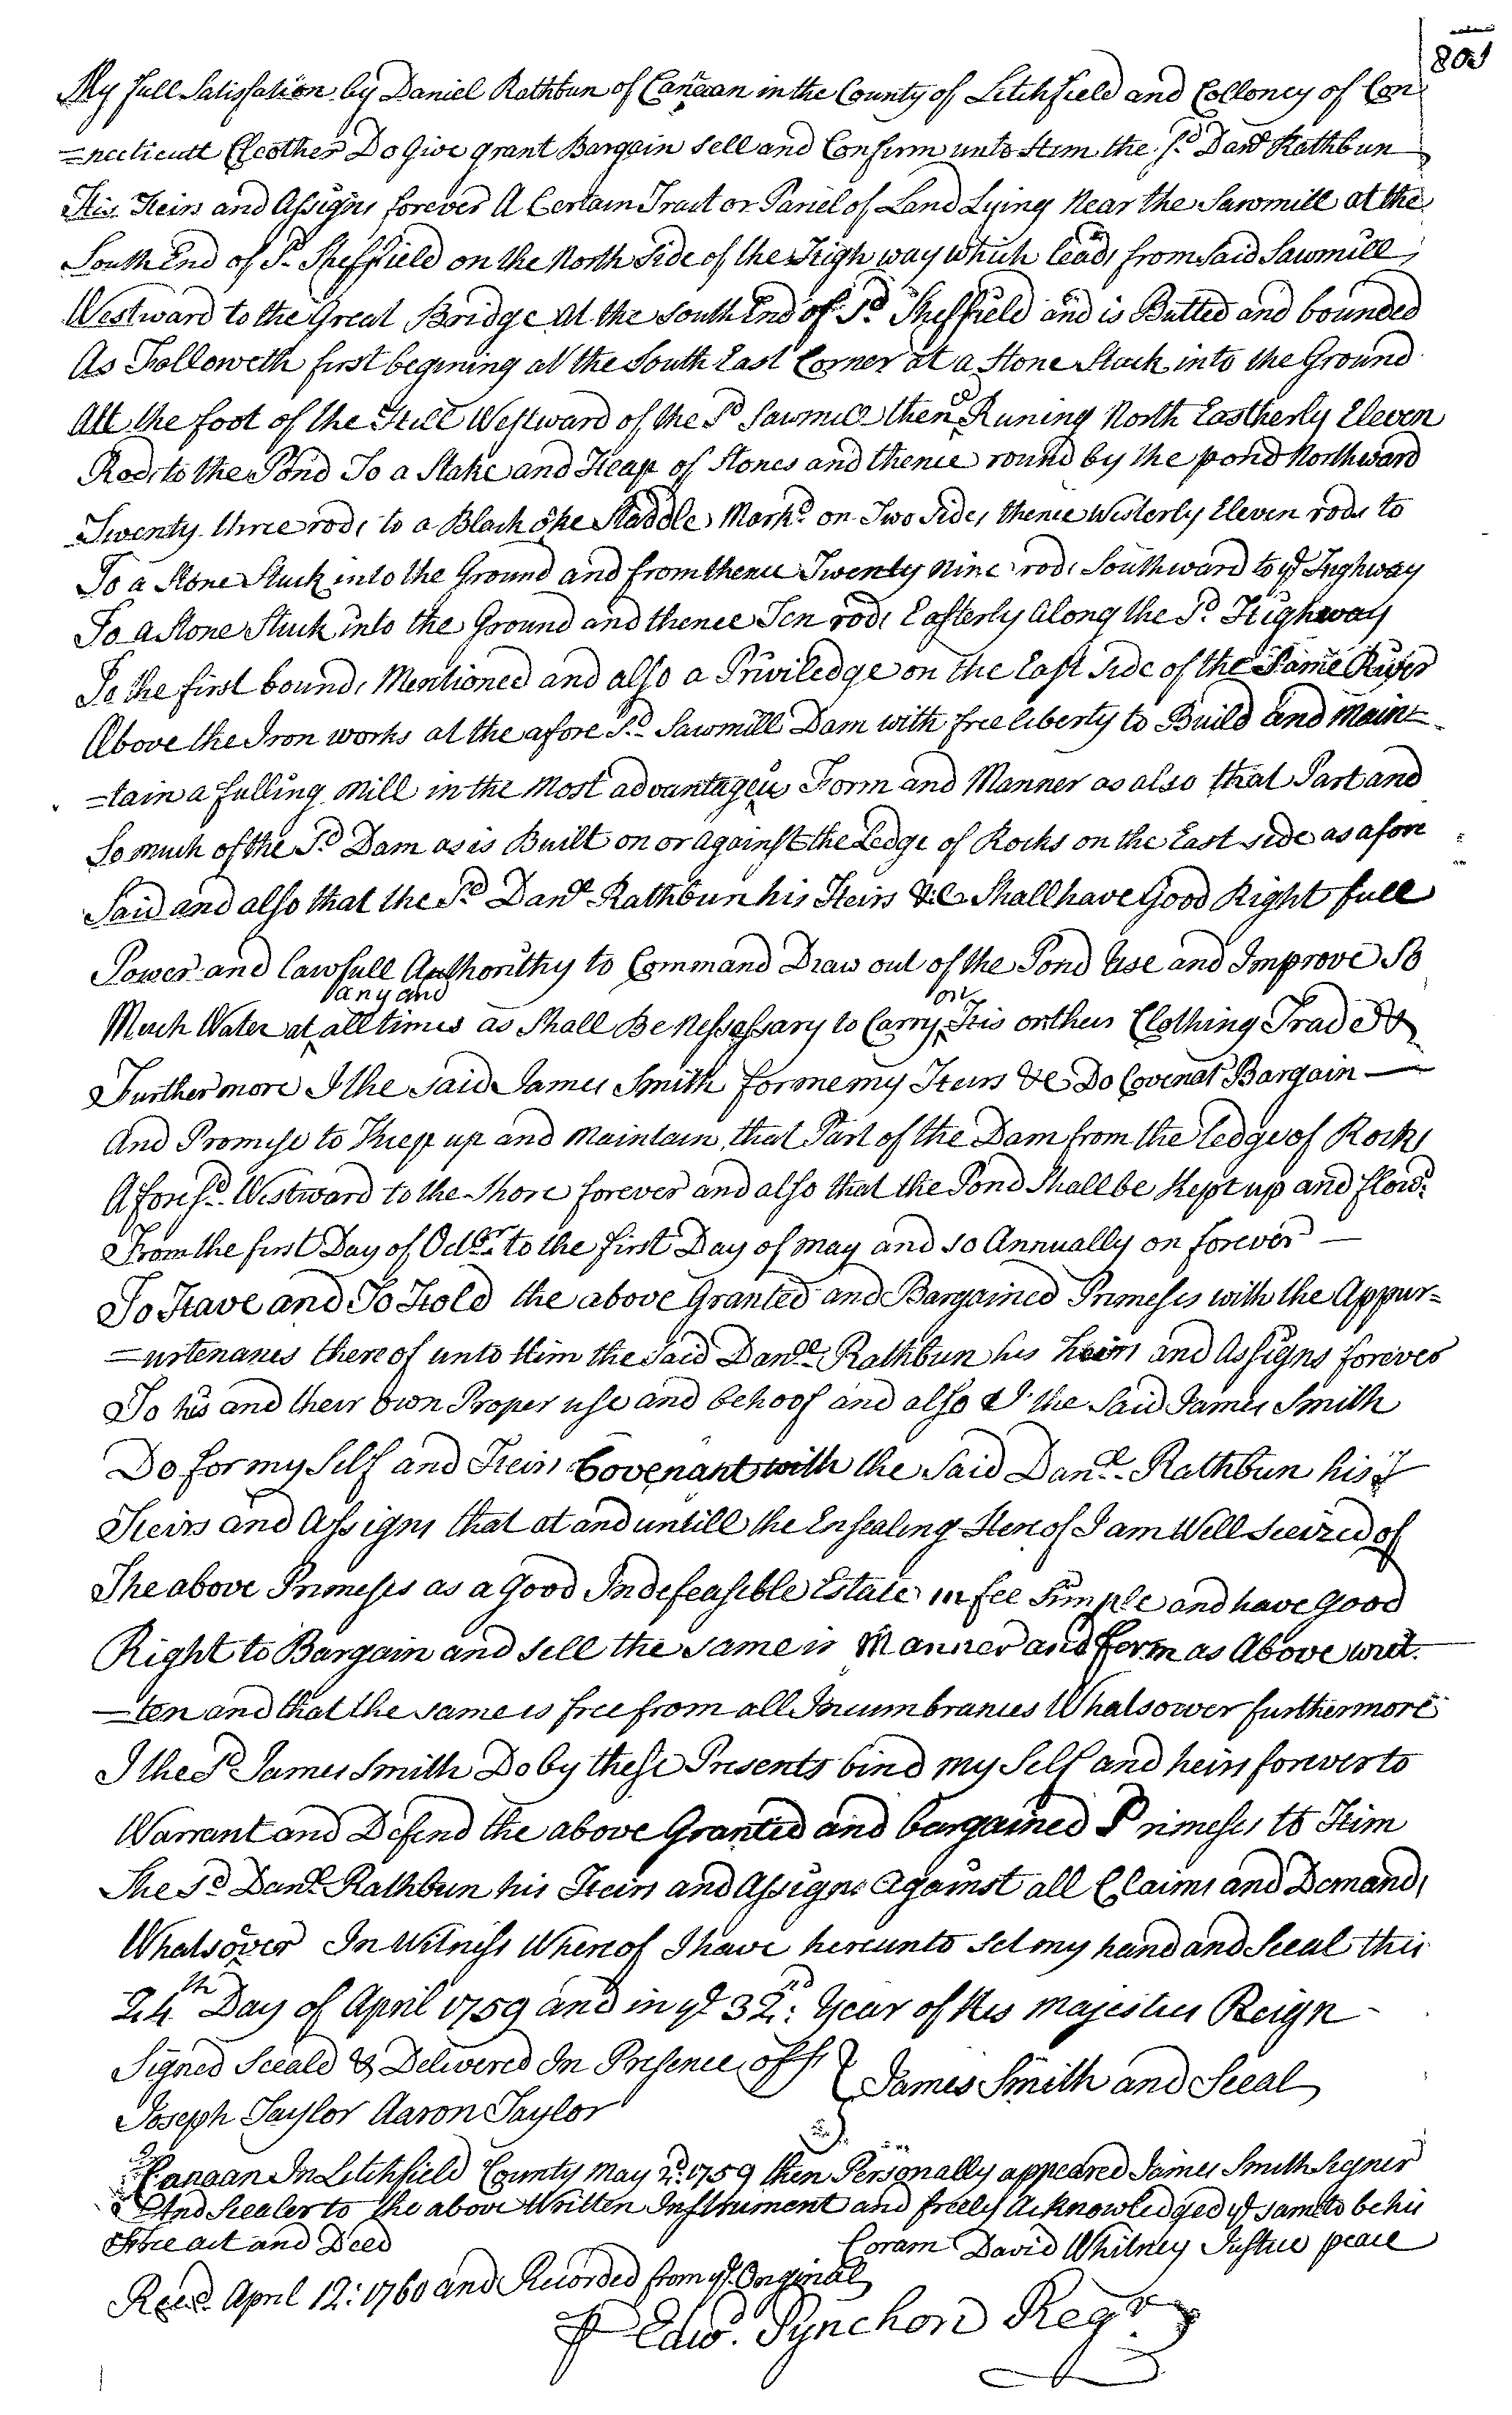 801
My full Satisfation by Daniel Rathbun of Canaan in the County of Litchfield and Colloney of Con
=necticutt Cleother Do Give grant Bargain sell and Confirm unto Him the sd Danll Rathbun
His Heirs and Assigns forever A Certain Tract or Parcel of Land Lying Near the Sawmill at the
South End of sd Sheffield on the North Side of the High way which leads from said Sawmill
Westward to the Great Bridge at the South End of sd Sheffield and is Butted and bounded
As Followeth first begining at the South East Corner at a Stone Stuck into the Ground
Att the foot of the Hill Westward of the sd Sawmill thence Runing North Eastherly Eleven
Rods to the Pond To a Stake and Heap of Stones and thence round by the pond Northward
Twenty three rods to a Black oke Staddle Markd on Two Sides thence Westerly Eleven rods to
To a Stone Stuck into the Ground and from thence Twenty Nine rods Southward to ye Highway
To a Stone Stuck into the Ground and thence Ten rods Easterly Along the sd Highway
To the first bounds Mentioned and also a Priviledge on the East Side of the Same River
Above the Iron works at the afore sd Sawmill Dam with free liberty to Build and Main=
=tain a fulling mill in the Most advantageus Form and Manner as also that Part and
So much of the sd Dam as is Built on or against the Ledge of Rocks on the East side as afore
Said and also that the sd Danll Rathbun his Heirs &c Shall have Good Right full
Power and lawfull Authorithy to Command Draw out of the Pond Use and Improve So
Much Water at any and all times as Shall Be Nessessary to Carry on His or theirs Clothing Trade &
Furthermore I the said James Smith for me my Heirs &c Do Covenat Bargain —
And Promise to Keep up and maintain that Part of the Dam from the ledge of Rocks
Aforesd Westward to the Shore forever and also that the Pond Shall be Kept up and flowd
From the first Day of Octbr to the first Day of may and so Annually on forever —
To Have and To Hold the above Granted and Bargained Primeses with the Appur=
=urtenances thereof unto Him the said Danll Rathbun his heirs and Assigns forever
To his and their own Proper use and behoof and also I the said James Smith
Do for my Self and Heirs Covenant with the said Danll Rathbun his
Heirs and Assigns that at and untill the Ensealing Hereof I am Well Seeized of
The above Primeses as a Good Indefeasible Estate in fee Simple and have Good
Right to Bargain and sell the same in Manner and form as Above writ
=ten and that the same is free from all Incumbrances Whatsower furthermore
I the sd James Smith Do by these Presents bind my Self and heirs forever to
Warrant and Defend the above Granted and bargained Primeses to Him
The sd Danll Rathbun his Heirs and Assigns Against all Claims and Demands
Whatsover In Witness Whereof I have hereunto set my hand and Seeal this
24th Day of April 1759 and in ye 32d: Year of His Majesties Reign
Signed Seeald & Delivered In Presence off James Smith and Seeal
Joseph Taylor Aaron Taylor
Canaan In Litchfield County may 2d 1759 then Personally appeared James Smith Signer
And Sealer to the above Written Instrument and freely Acknowledged ye same to be his
free act and Deed Coram David Whitney Justice peace
Recd April 12: 1760 and Recorded from ye Original
P Edwd. Pynchon Regr